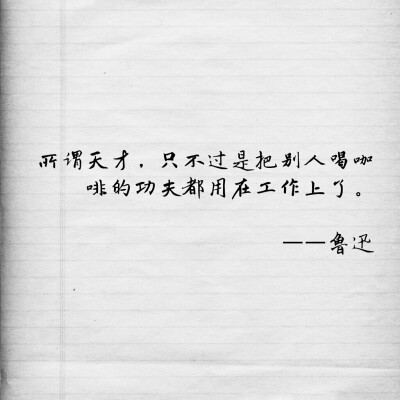 所谓天才，只不过是把别人喝咖
啡的功夫都用在工作上了。
——鲁迅